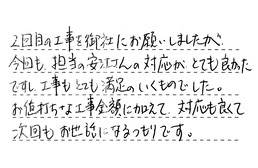 2回目の工事を御社にお願いしましたが
今回も、担当の安江さんの対応が、とても良かった
ですし、工事もとても満足のいくものでした。
お値打ちな工事金額に加えて、対応も良くて
次回もお世話になるつもりです。